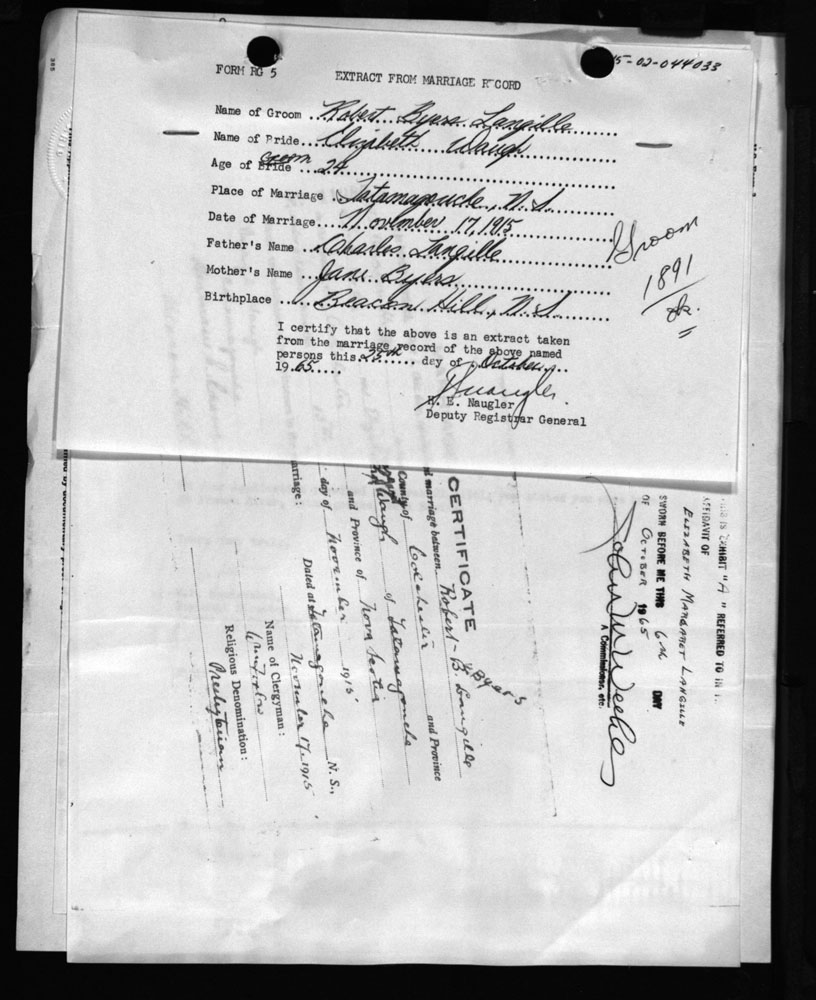 15-02-044033
FORM RG 5
EXTRACT FROM MARRIAGE RECORD
Name of Groom ..Robert Byers Langille
Name of Pride...Elizabeth Waugh
Age of Bride Groom ..24
Place of Marriage .Tatamagouche, N.S.
Date of Marriage...November 17, 1915
Father's Name ...Charles Langille
Mother's Name ...Jane Byers
Birthplace ....Beacon Hill, N.S.
Groom
1891
ok.
I certify that the above is an extract taken
from the marriage record of the above named
persons this 25th day of October
19.65.....
H. E. Naugler
Deputy Registrar General
THIS IS EXHIBIT "A" REFERRED TO IN
AFFIDAVIT OF
ELIZABETH MARGARET LANGILLE
SWORN BEFORE ME THIS 6th DAY
OF OCTOBER 1965
A Commissioner, etc.
CERTIFICATE
Byers
d marriage between Robert B. Langille
County of Colchester and Province
Waugh of Tatamagouche
and Province of Nova Scotia
day of November 1915
arriage:
Dated at Tatamagouche N. S.,
November 17, 1915
Name of Clergyman:
Religious Denomination:
Presbyterian